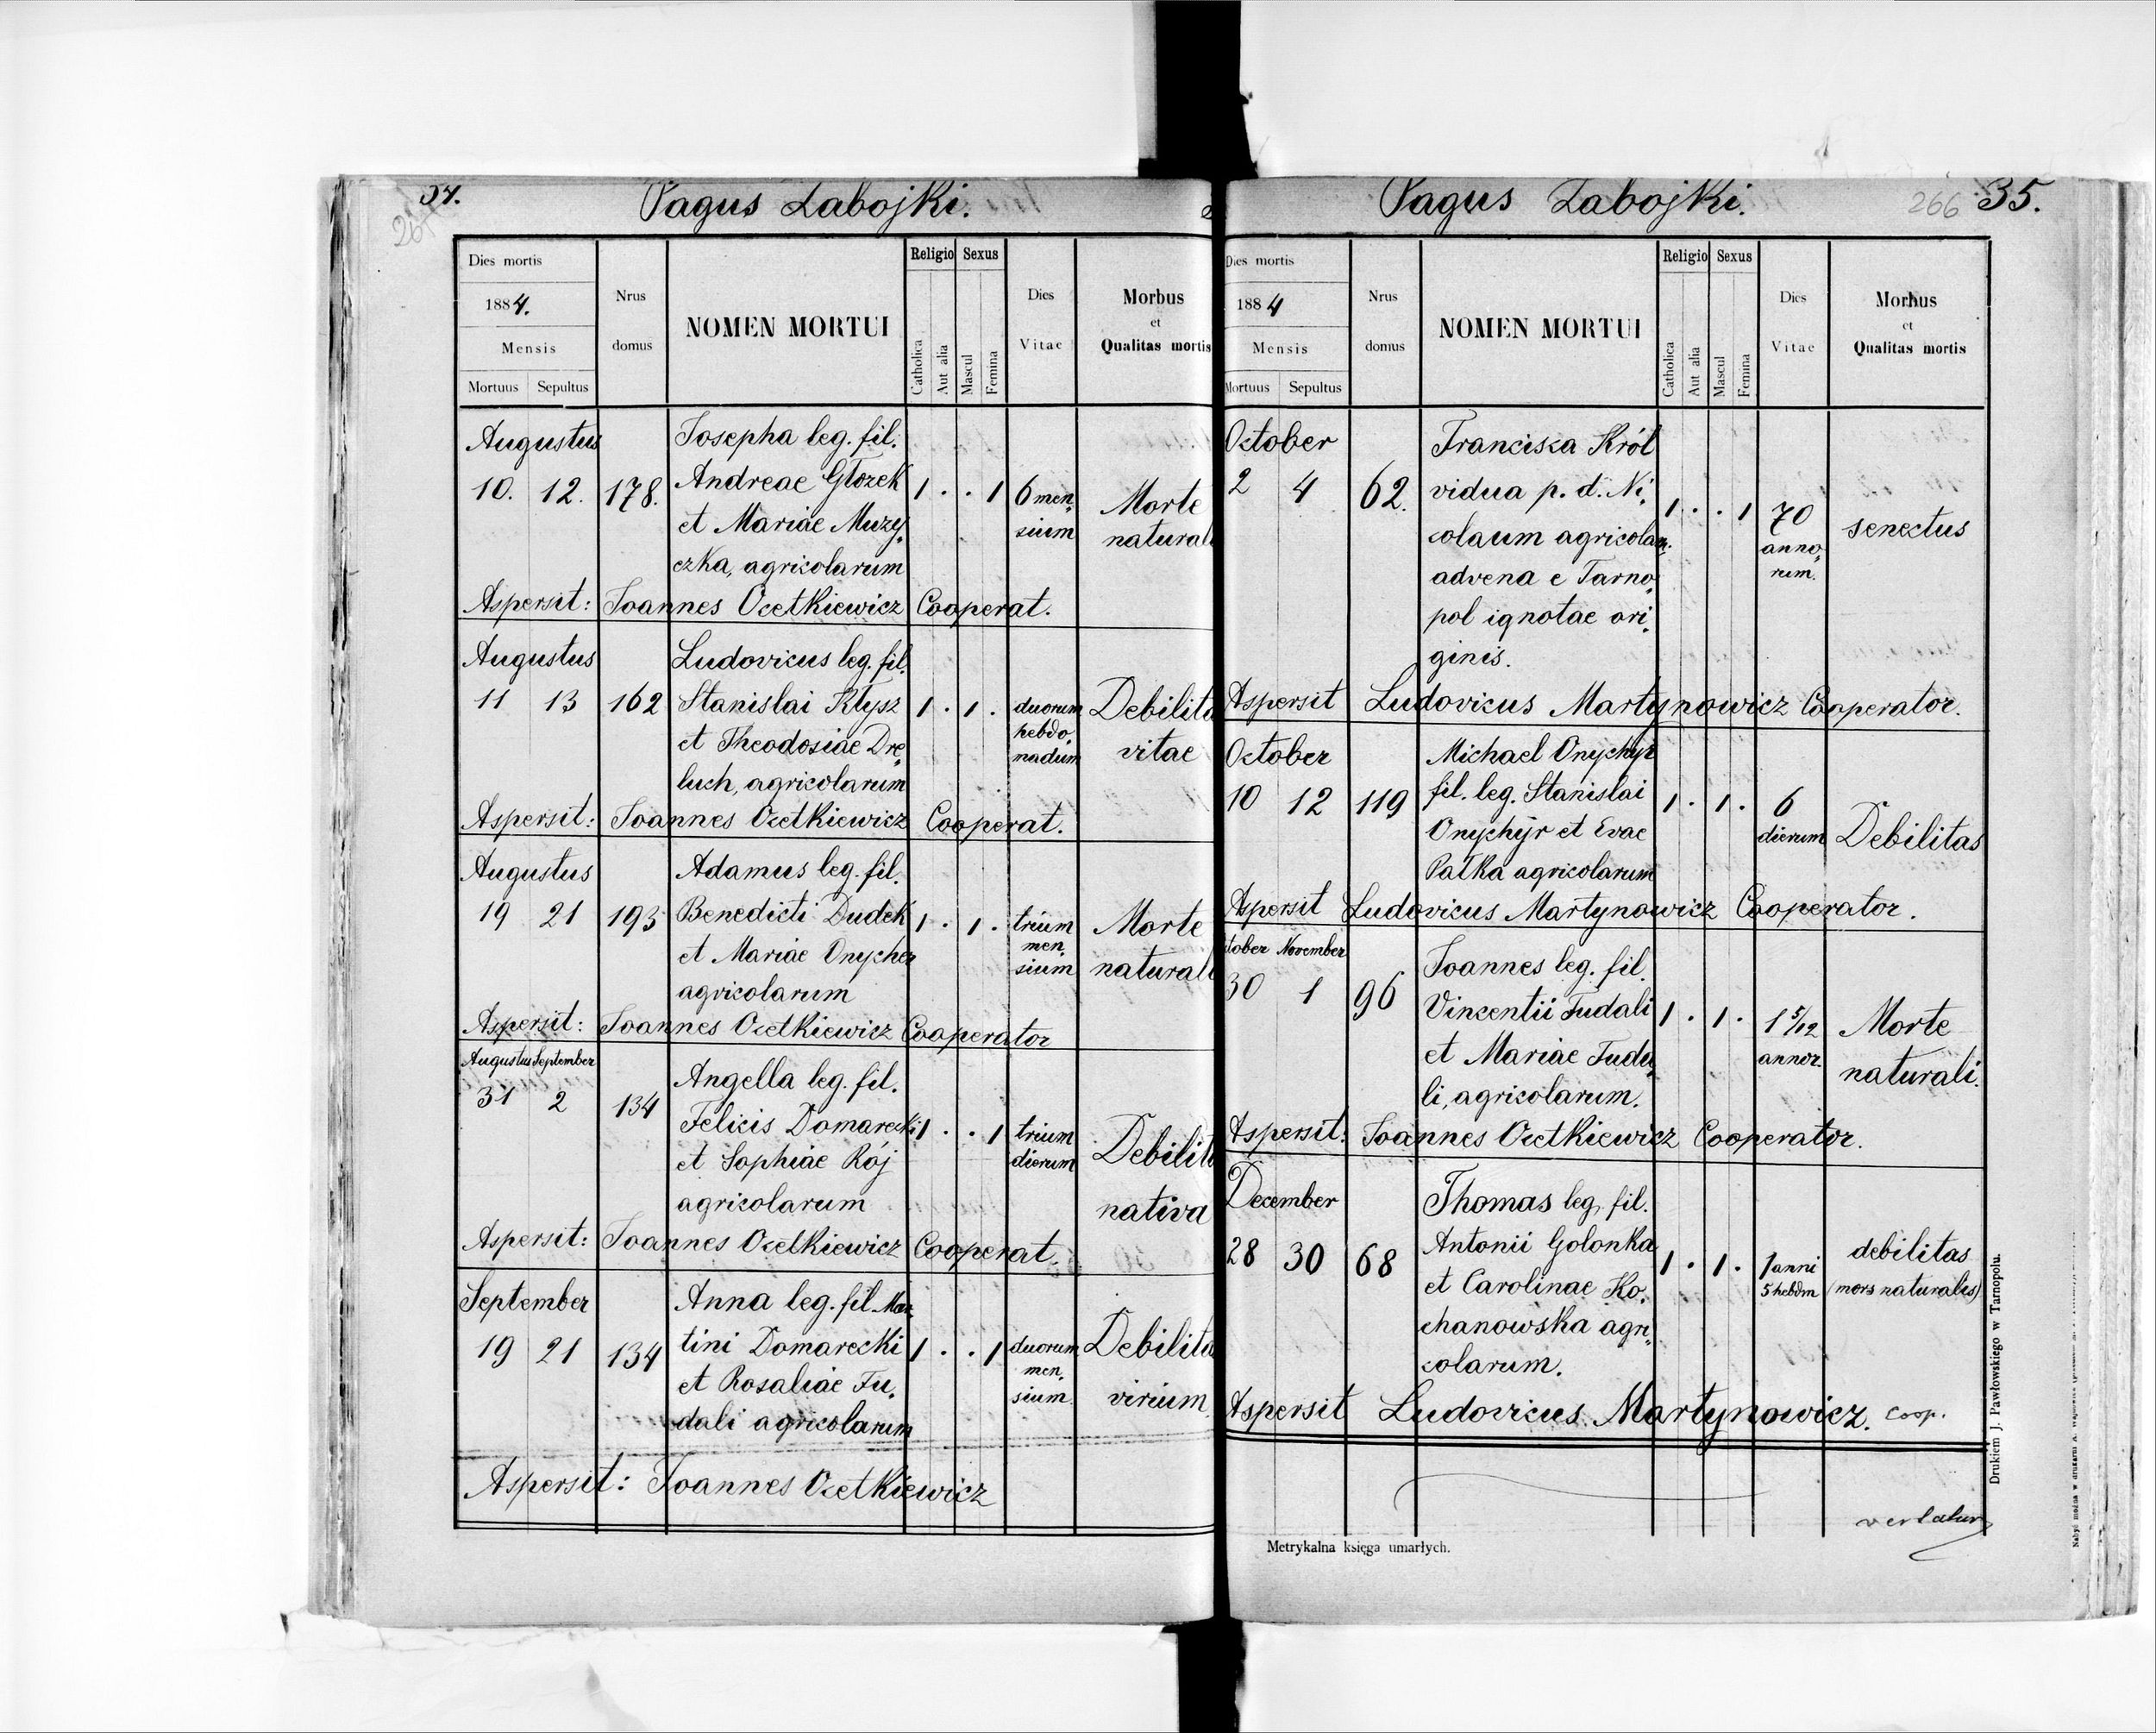 34.
Pagus Zabojki.
Dies mortis
1884.
Mensis
Mortuus Sepultus
Nrus domus
NOMEN MORTUI
Religio
Catholica
Aut alia
Sexus
Mascul
Femina
Dies Vitae
Morbus
et
Qualitas mortis
Augustus
Josepha leg. fil.
10. 12. 178. Andreae Głozek 1 . . 1 6 men„ Morte
et Mariae Muzy„ sium natural
czka, agricolarum
Aspersit: Joannes Ocetkiewicz Cooperat.
Augustus
Ludovicus leg. fil.
11 13 162 Stanislai Kłysz 1 . 1 . duorum Debilita
et Theodosiae Dre„ hebdo„ vitae
luch, agricolarum madum
Aspersit: Joannes Ocetkiewicz Cooperat.
Augustus
Adamus leg. fil.
19 21 193 Benedicti Dudek 1 . 1 . trium Morte
et Mariae Onycher men„ natural
agricolarum sium
Aspersit: Joannes Ocetkiewicz Cooperator
Augustus September
Angella leg. fil.
31 2 134 Felicis Domarecki 1 . . 1 trium Debilit
et Sophiae Rój dierum nativa
agricolarum
Aspersit: Joannes Ocetkiewicz Cooperat.
September
Anna leg. fil. Mar„
19 21 134 tini Domarecki 1 . . 1 duorum Debilita
et Rosaliae Fu„ men„ virium
dali agricolarum sium
Aspersit: Joannes Ocetkiewicz
Pagus Zabojki.
266 35.
Dies mortis
1884
Mensis
Mortuus Sepultus
Nrus domus
NOMEN MORTUI
Religio
Catholica
Aut alia
Sexus
Mascul
Femina
Dies Vitae
Morbus
et
Qualitas mortis
October
Francisca Król
2 4 62. vidua p. d. Ni„ 1 . . 1 70 senectus
colaum agricolam. anno„
advena e Tarno„ rum.
pol ignotae ori„
ginis.
Aspersit Ludovicus Martynowicz Cooperator.
October
Michael Onychyr
10 12 119 fil. leg. Stanislai 1 . 1 . 6 Debilitas
Onychyr et Evae dierum
Pałka agricolarum
Aspersit Ludovicus Martynowicz Cooperator.
tober November
Joannes leg. fil.
30 1 96 Vincentii Fudali 1 . 1 . 1 5/12 Morte
et Mariae Fudu„ annor. naturali.
li, agricolarum.
Aspersit: Joannes Ocetkiewicz Cooperator.
December
Thomas leg. fil.
28 30 68 Antonii Golonka 1 . 1 . 1 anni debilitas
et Carolinae Ko„ 5 hebdm (mors naturalis)
chanowska agri„
colarum.
Aspersit Ludovicus Martynowicz. coop.
vertatur
Metrykalna księga umarłych.
Drukiem J. Pawłowskiego w Tarnopolu.